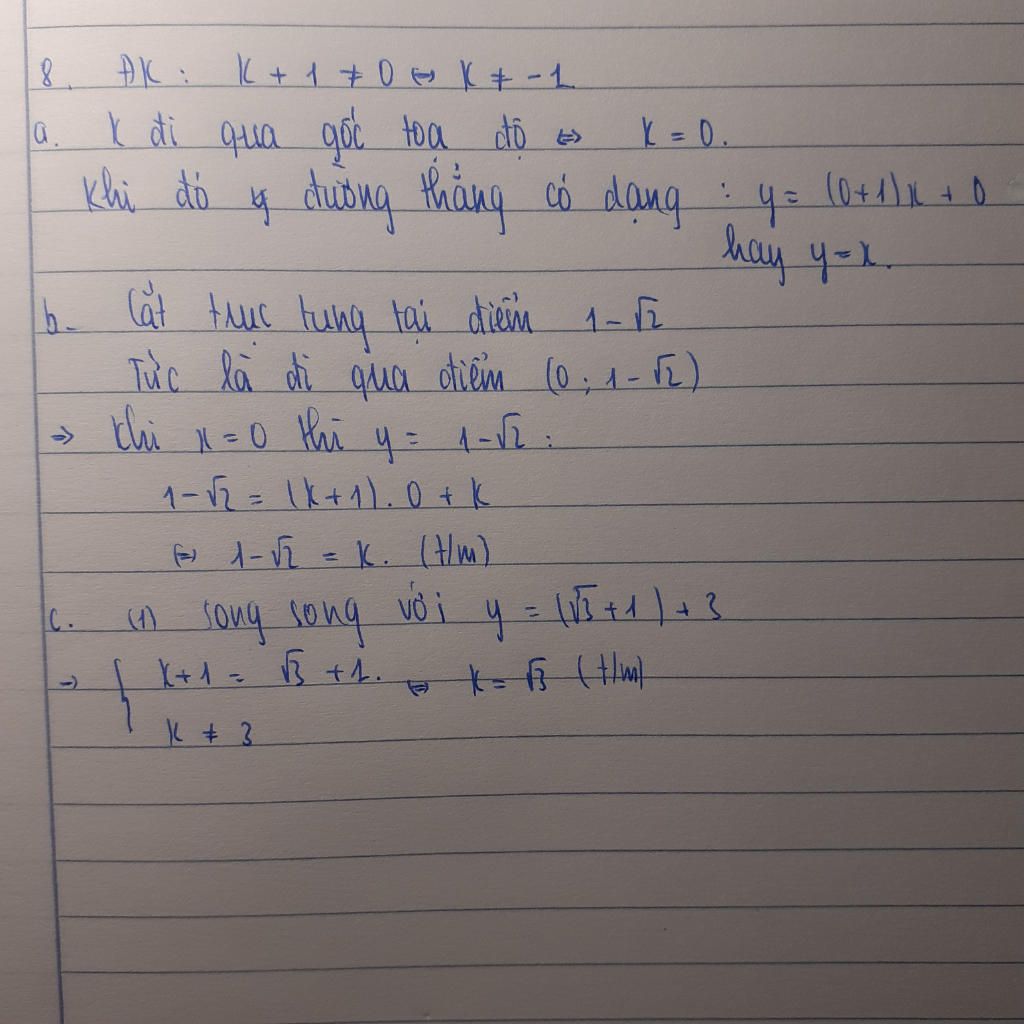 8. ĐK: K + 1 ≠ 0 ⇔ K ≠ -1
a. K đi qua gốc toạ độ ⇔ K = 0.
Khi đó đường thẳng có dạng : y = (0+1)x + 0
hay y = x.
b. Cắt trục tung tại điểm 1-√2
Tức là đi qua điểm (0; 1-√2)
⇒ Khi x = 0 thì y = 1-√2 :
1-√2 = (K+1). 0 + K
⇔ 1-√2 = K. (t/m)
c. (1) song song với y = (√3+1) + 3
→ { K+1 = √3 +1. ⇔ K = √3 (t/m)
K ≠ 3